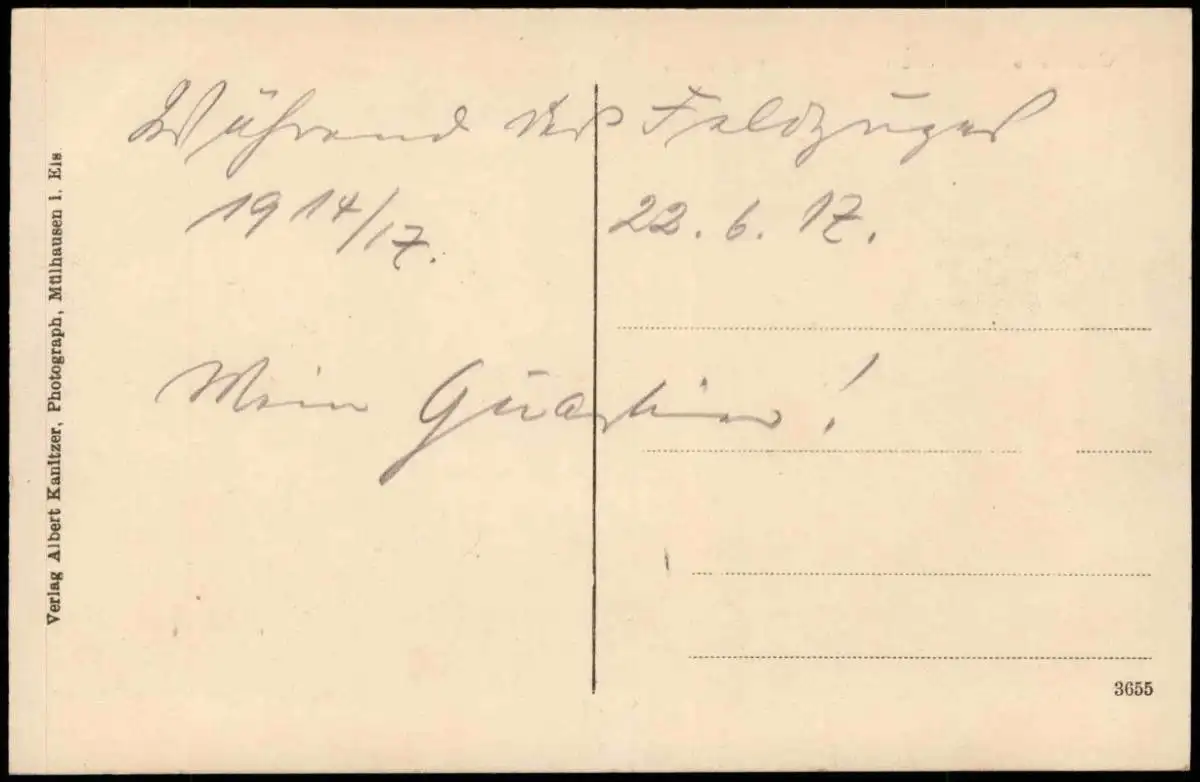 Während des Feldzuges
1914/17. 22.6.17.
Mein Quartier!
Verlag Albert Kanitzer, Photograph, Mülhausen i. Els.
3655